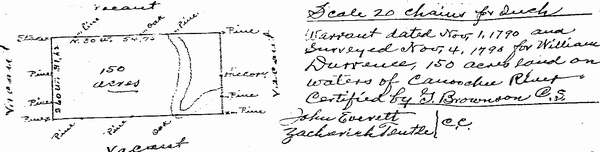 Vacant
Pine
Oak
Stake
N. 30 W. 54,76
Pine
Pine
150
acres
Pine
Hickory
Vacant
Vacant
Pine
Pine
Pine
Pine
Pine
Pine
Oak
Vacant
Scale 20 Chains for Inch
Warrant dated Nov, 1, 1790 and
Surveyed Nov, 4, 1790 for William
Durrence, 150 acres land on
waters of Canoochee River
Certified by J. Brownson C.S.
John Everett
Zacherick
C.C.